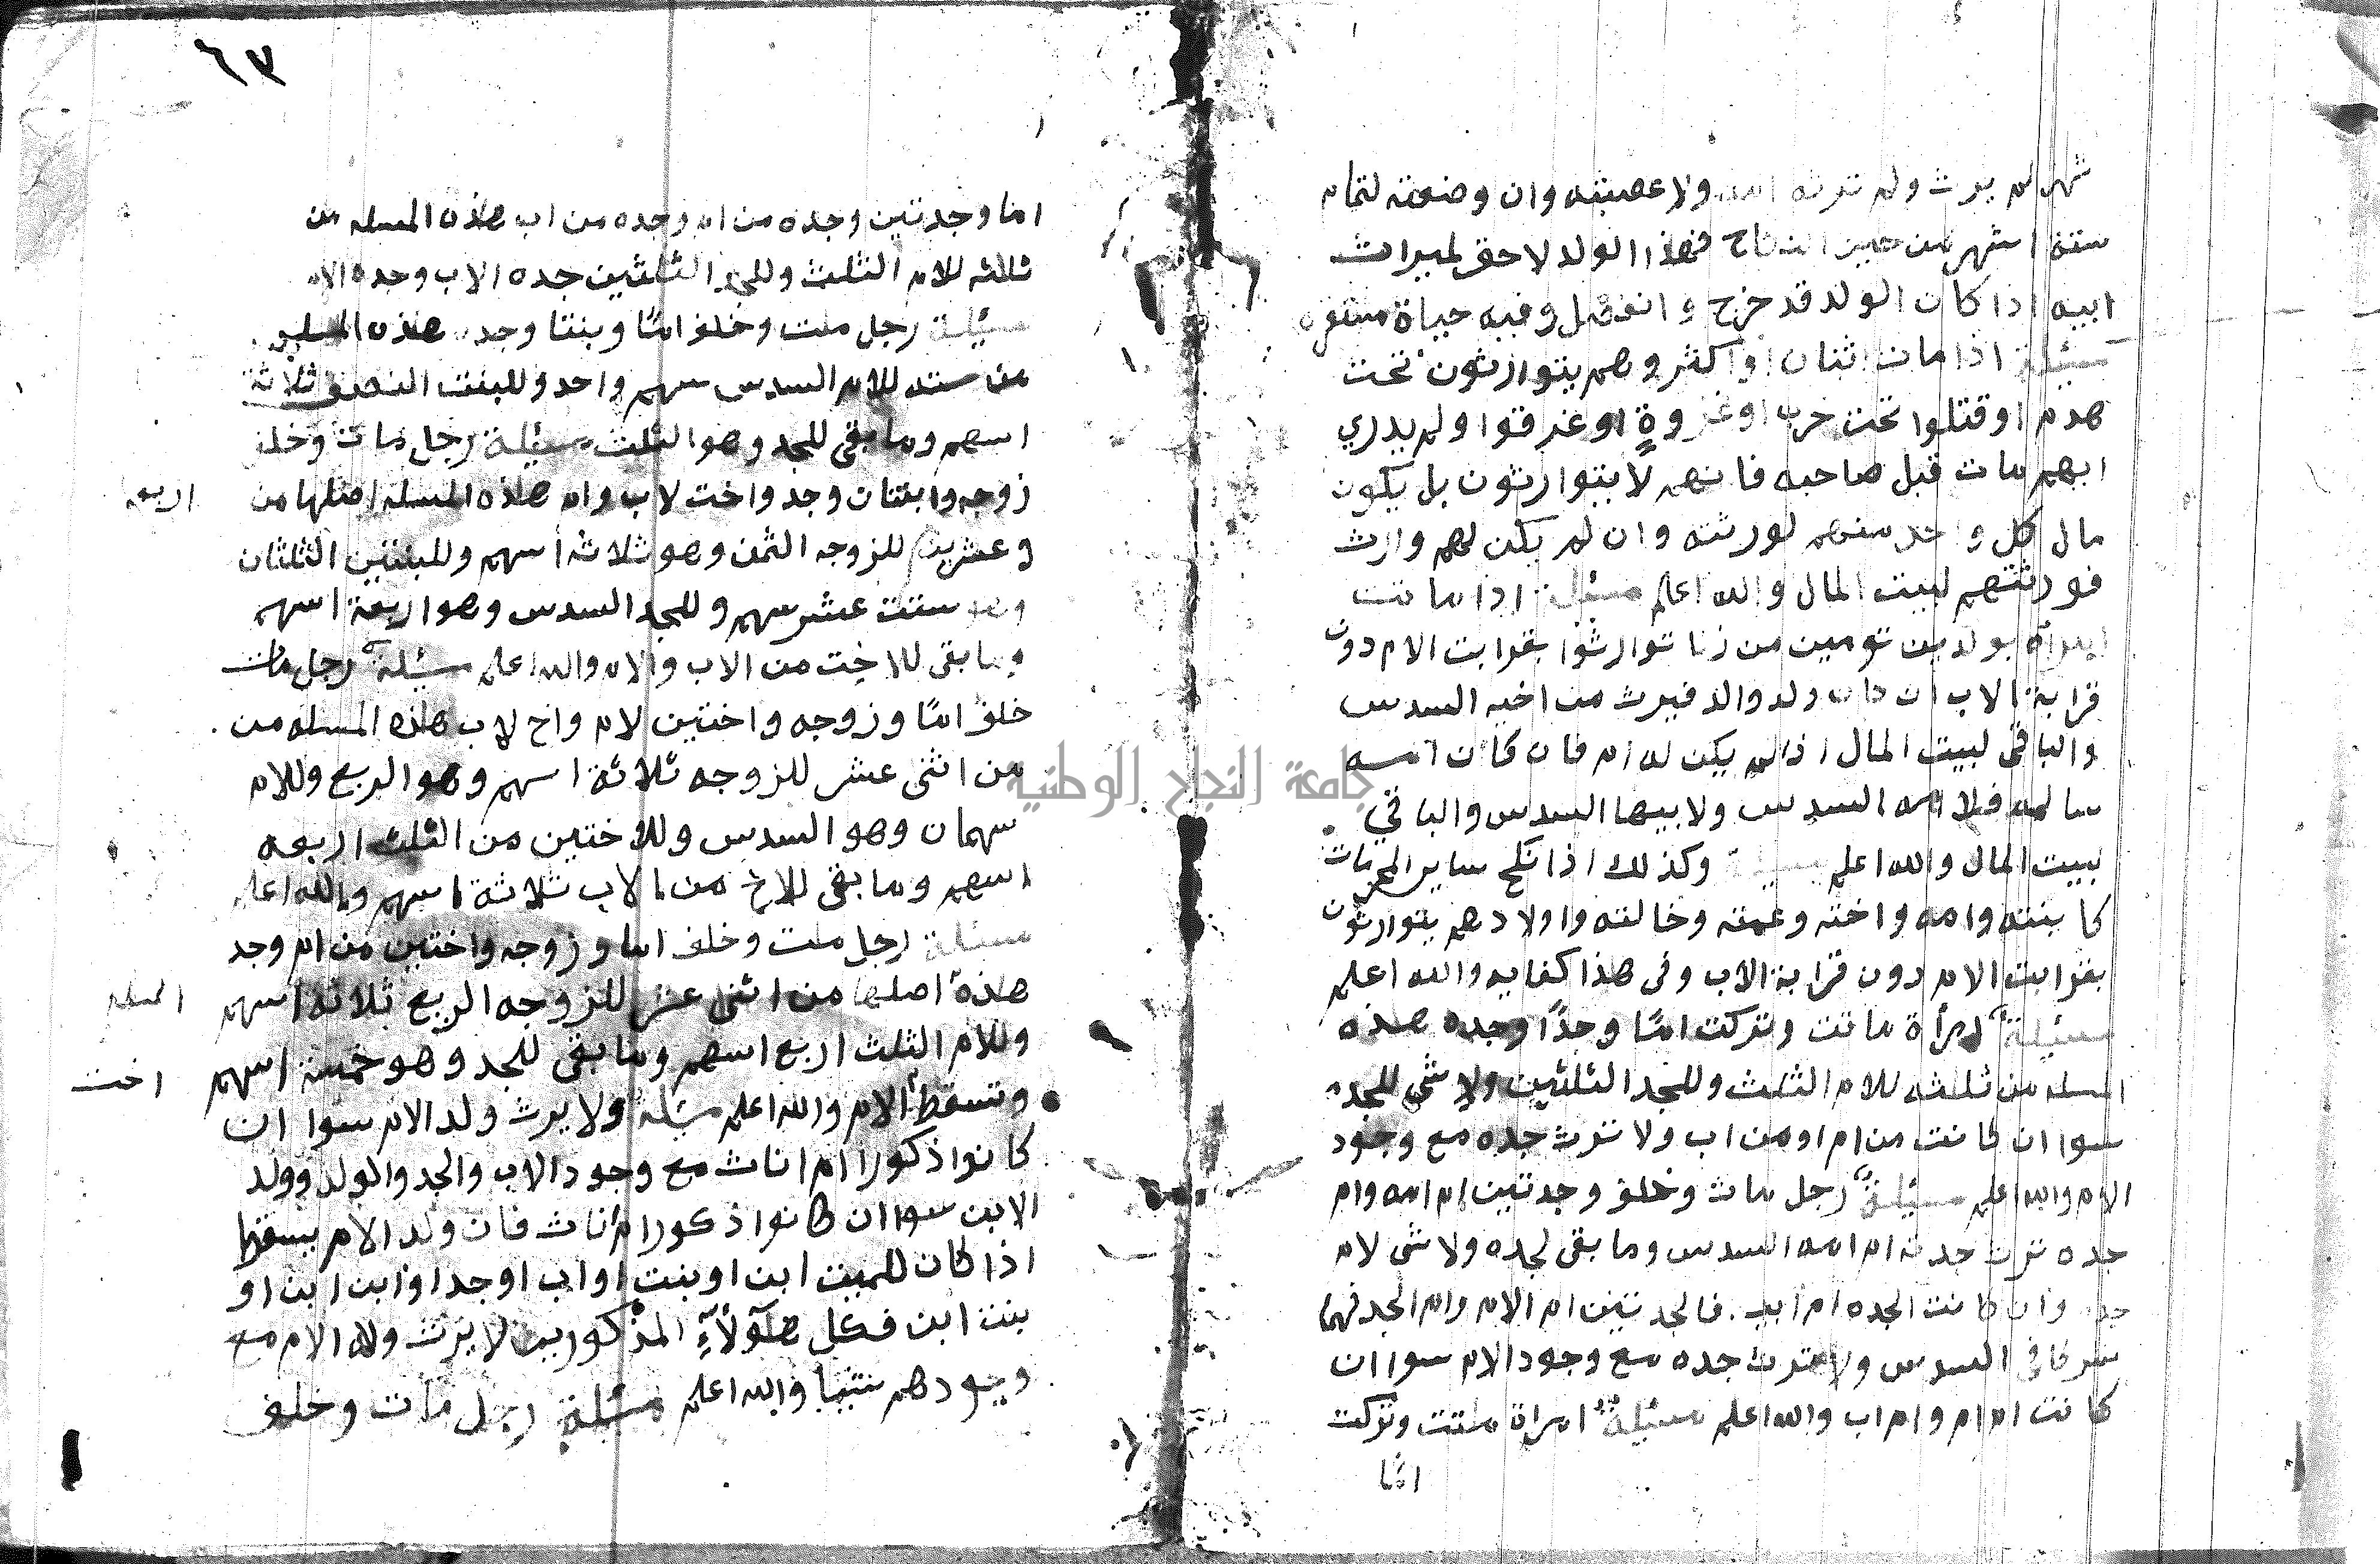 شهر لم يرث ولم ترثه امه ولا عصبته وان وضعته لتمام
ستة اشهر من حين النكاح فهذا الولد لاحق لميراث
ابيه اذا كان الولد قد خرج وانفصل وفيه حياة مستقره
مسئلة اذا مات اثنان او اكثر وهم يتوارثون تحت
هدم او قتلوا تحت حرب او غزوةٍ او غرقوا ولم يدري
ايهم مات قبل صاحبه فانهم لا يتوارثون بل يكون
مال كل واحد منهم لورثته وان لم يكن لهم وارث
فورثتهم لبيت المال والله اعلم مسئلة اذا ماتت
امرأة بولدين تومين من زنا توارثوا بقرابت الام دون
قرابة الاب ان كان ولد والد فيرث من اخيه السدس
والباقي لبيت المال اذا لم يكن له ام فان كانت امه
سالمه فلامه السدس ولابيها السدس والباقي
لبيت المال والله اعلم مسئلة وكذلك اذا نكح ساير المحرمات
كابنته وامه واخته وعمته وخالته واولادهم يتوارثون
بقرابت الام دون قرابة الاب وفي هذا كفايه والله اعلم
مسئلة امرأة ماتت وتركت امًا وجدًا وجده هذه
المسله من ثلثه للام الثلث وللجد الثلثين ولا شي للجده
سوا ان كانت من ام او من اب ولا ترث جده مع وجود
الام والله اعلم مسئلة رجل مات وخلف وجدتين ام امه وام
جده ترث جدته ام امه السدس وما بقى لجده ولا شي لام
جده وان كانت الجده ام اب فالجدتين ام الام وام الجد فهما
شركا في السدس ولا ترث جده مع وجود الام سوا ان
كانت ام ام وام اب والله اعلم مسئلة امراة ماتت وتركت
امًا
٦٣
اما وجدتين وجده من ام وجده من اب هذه المسله من
ثلاثه للام الثلث وللجد الثلثين جده الاب وجده الام
مسئلة رجل مات وخلف امًا وبنتا وجد هذه المسله
من سته للام السدس سهم واحد وللبنت النصف ثلاثة
اسهم وما بقى للجد وهو الثلث مسئلة رجل مات وخلف
زوجه وابنتان وجد واخت لاب وام هذه المسله اصلها من اربعه
وعشرين للزوجه الثمن وهو ثلاثة اسهم وللبنتين الثلثان
وهو ستت عشر سهم وللجد السدس وهو اربعة اسهم
وما بقى للاخت من الاب والام والله اعلم مسئلة رجل مات
خلف امًا وزوجه واختين لام واخ لاب هذه المسله من
من اثنى عشر للزوجه ثلاثة اسهم وهو الربع وللام
سهمان وهو السدس وللاختين من الثلث اربعه
اسهم وما بقى للاخ من الاب ثلاثة اسهم والله اعلم
مسئلة رجل مات وخلف اما وزوجه واختين من ام وجد
هذه اصلها من اثنى عشر للزوجه الربع ثلاثه اسهم المسله
وللام الثلث اربع اسهم وما بقى للجد وهو خمسة اسهم
وتسقط الام والله اعلم مسئلة ولا يرث ولد الام سوا ان اخت
كانوا ذكورا ام اناث مع وجود الاب والجد والولد وولد
الابن سوا ان كانوا ذكورا ام اناث فان ولد الام يسقط
اذا كان للميت ابن او بنت او اب او جد او ابن ابن او
بنت ابن فكل هؤلآءِ المذكورين لا يرث ولد الام مع
وجودهم شيئا والله اعلم مسئلة رجل مات وخلف
جامعة النجاح الوطنية